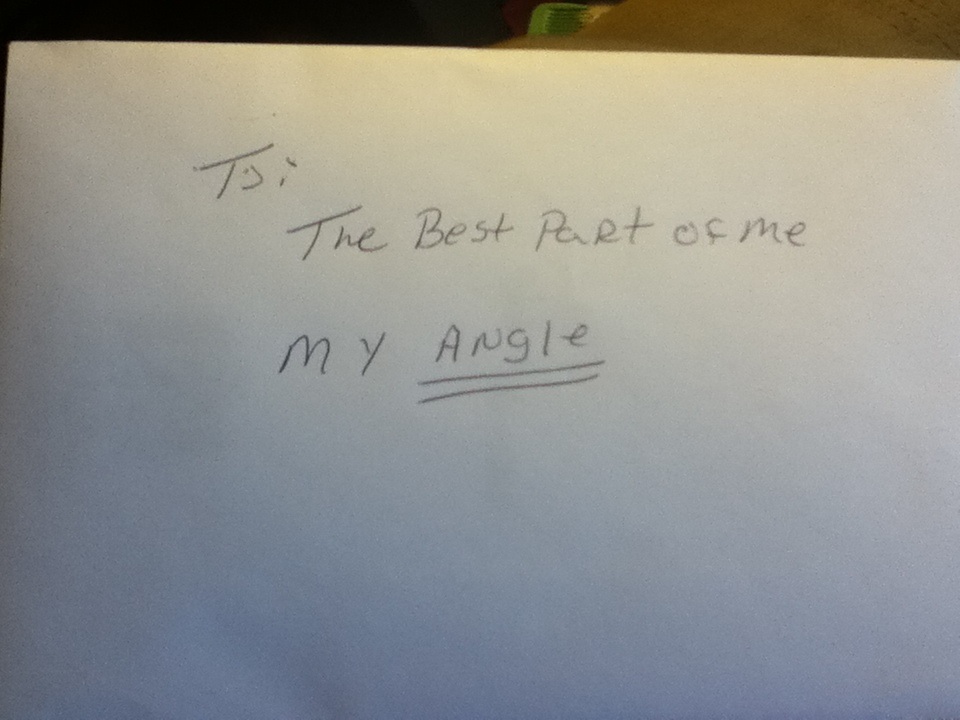 To:
The Best Part of me
MY Angle